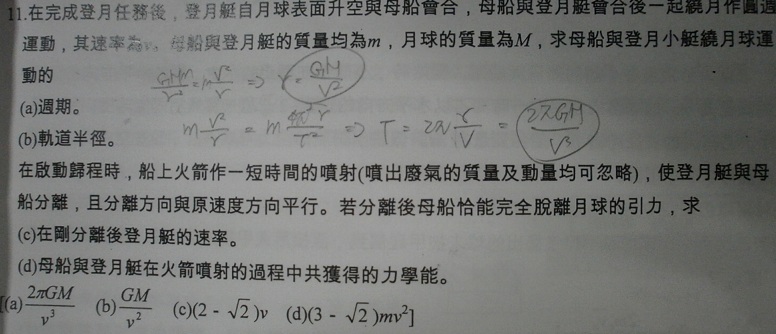 11.在完成登月任務後，登月艇自月球表面升空與母船會合，母船與登月艇會合後一起繞月作圓周
運動，其速率為v。母船與登月艇的質量均為m，月球的質量為M，求母船與登月小艇繞月球運
動的
GMm/r² = m v²/r => r = GM/v²
(a)週期。
m v²/r = m 4π²r/T² => T = 2π r/v = 2πGM/v³
(b)軌道半徑。
在啟動歸程時，船上火箭作一短時間的噴射(噴出廢氣的質量及動量均可忽略)，使登月艇與母
船分離，且分離方向與原速度方向平行。若分離後母船恰能完全脫離月球的引力，求
(c)在剛分離後登月艇的速率。
(d)母船與登月艇在火箭噴射的過程中共獲得的力學能。
[(a) 2πGM/v³ (b) GM/v² (c)(2 - √2)v (d)(3 - √2)mv²]